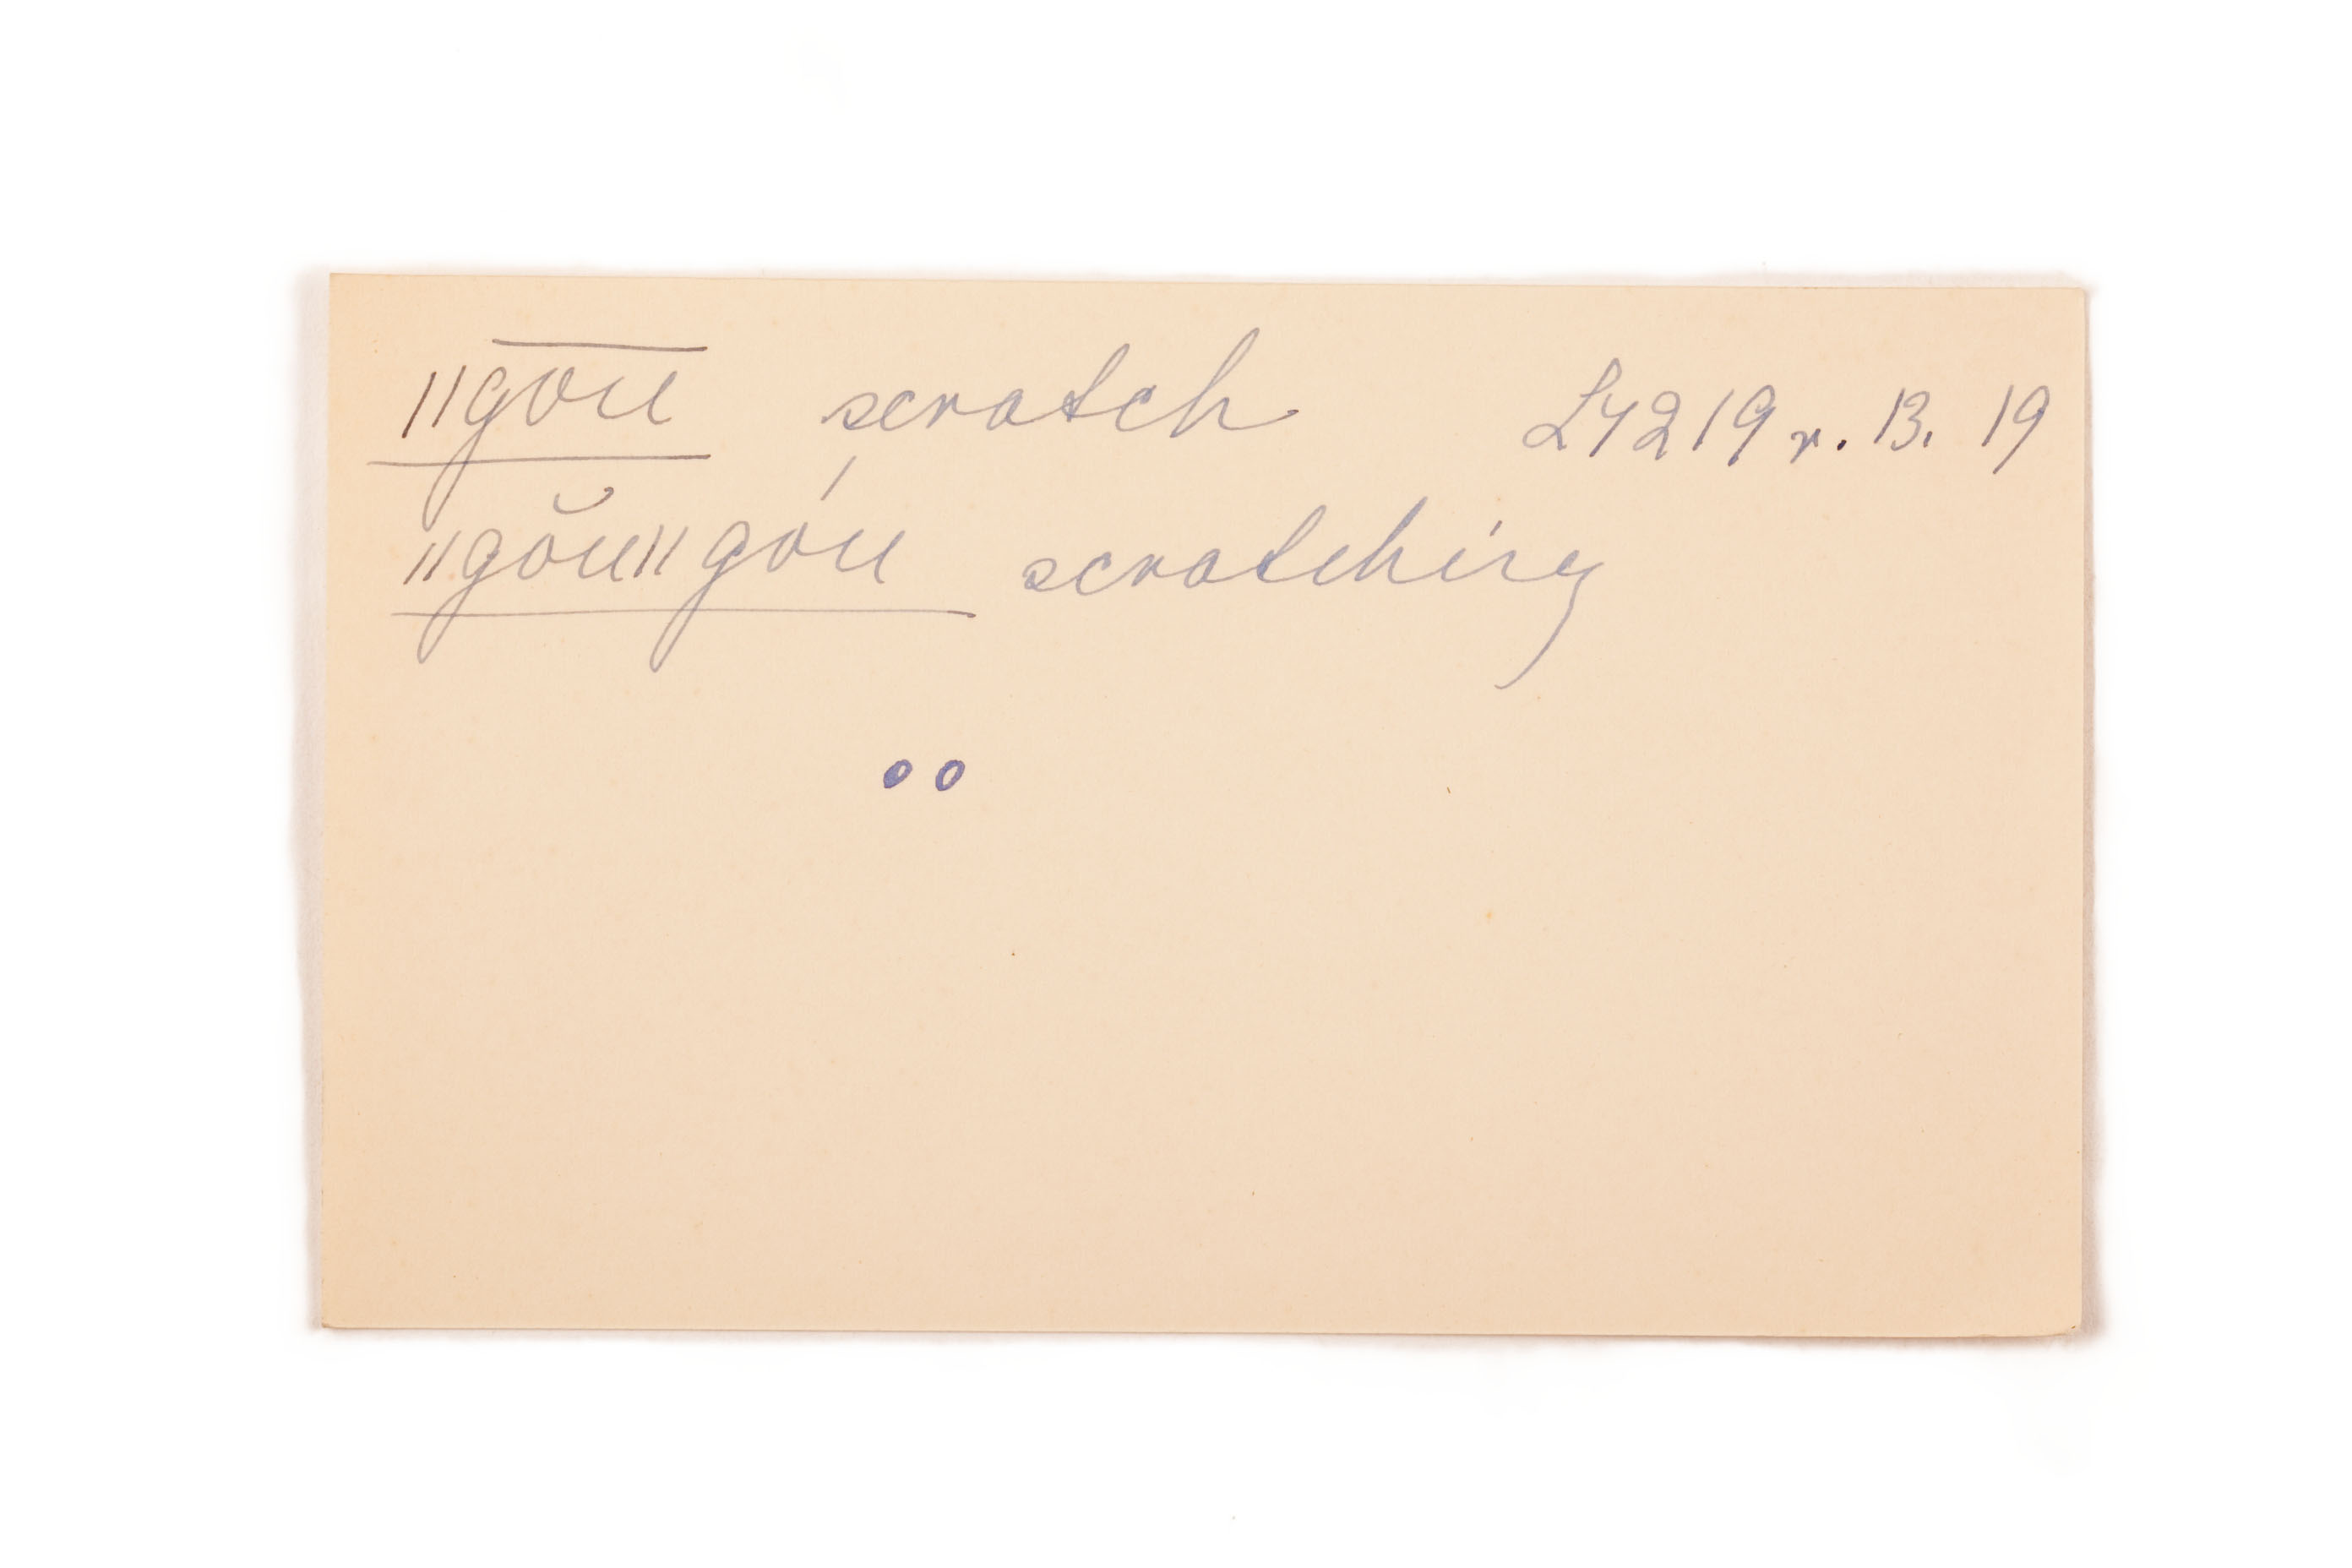 ǁgōū scratch L4219 r. 13. 19
ǁgŏuǁgóu scratching
oo